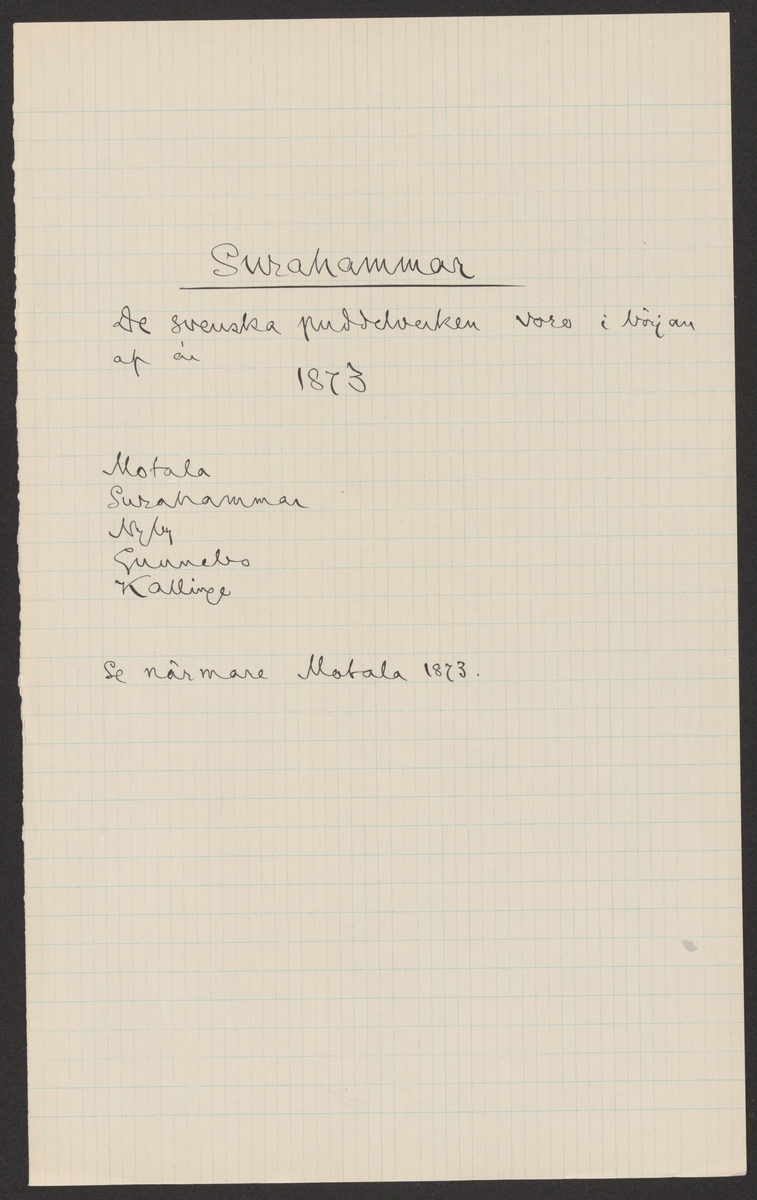 Surahammar
De svenska puddelverken voro i början
af år
1873
Motala
Surahammar
Nyby
Gunnebo
Kallinge
Se närmare Motala 1873.